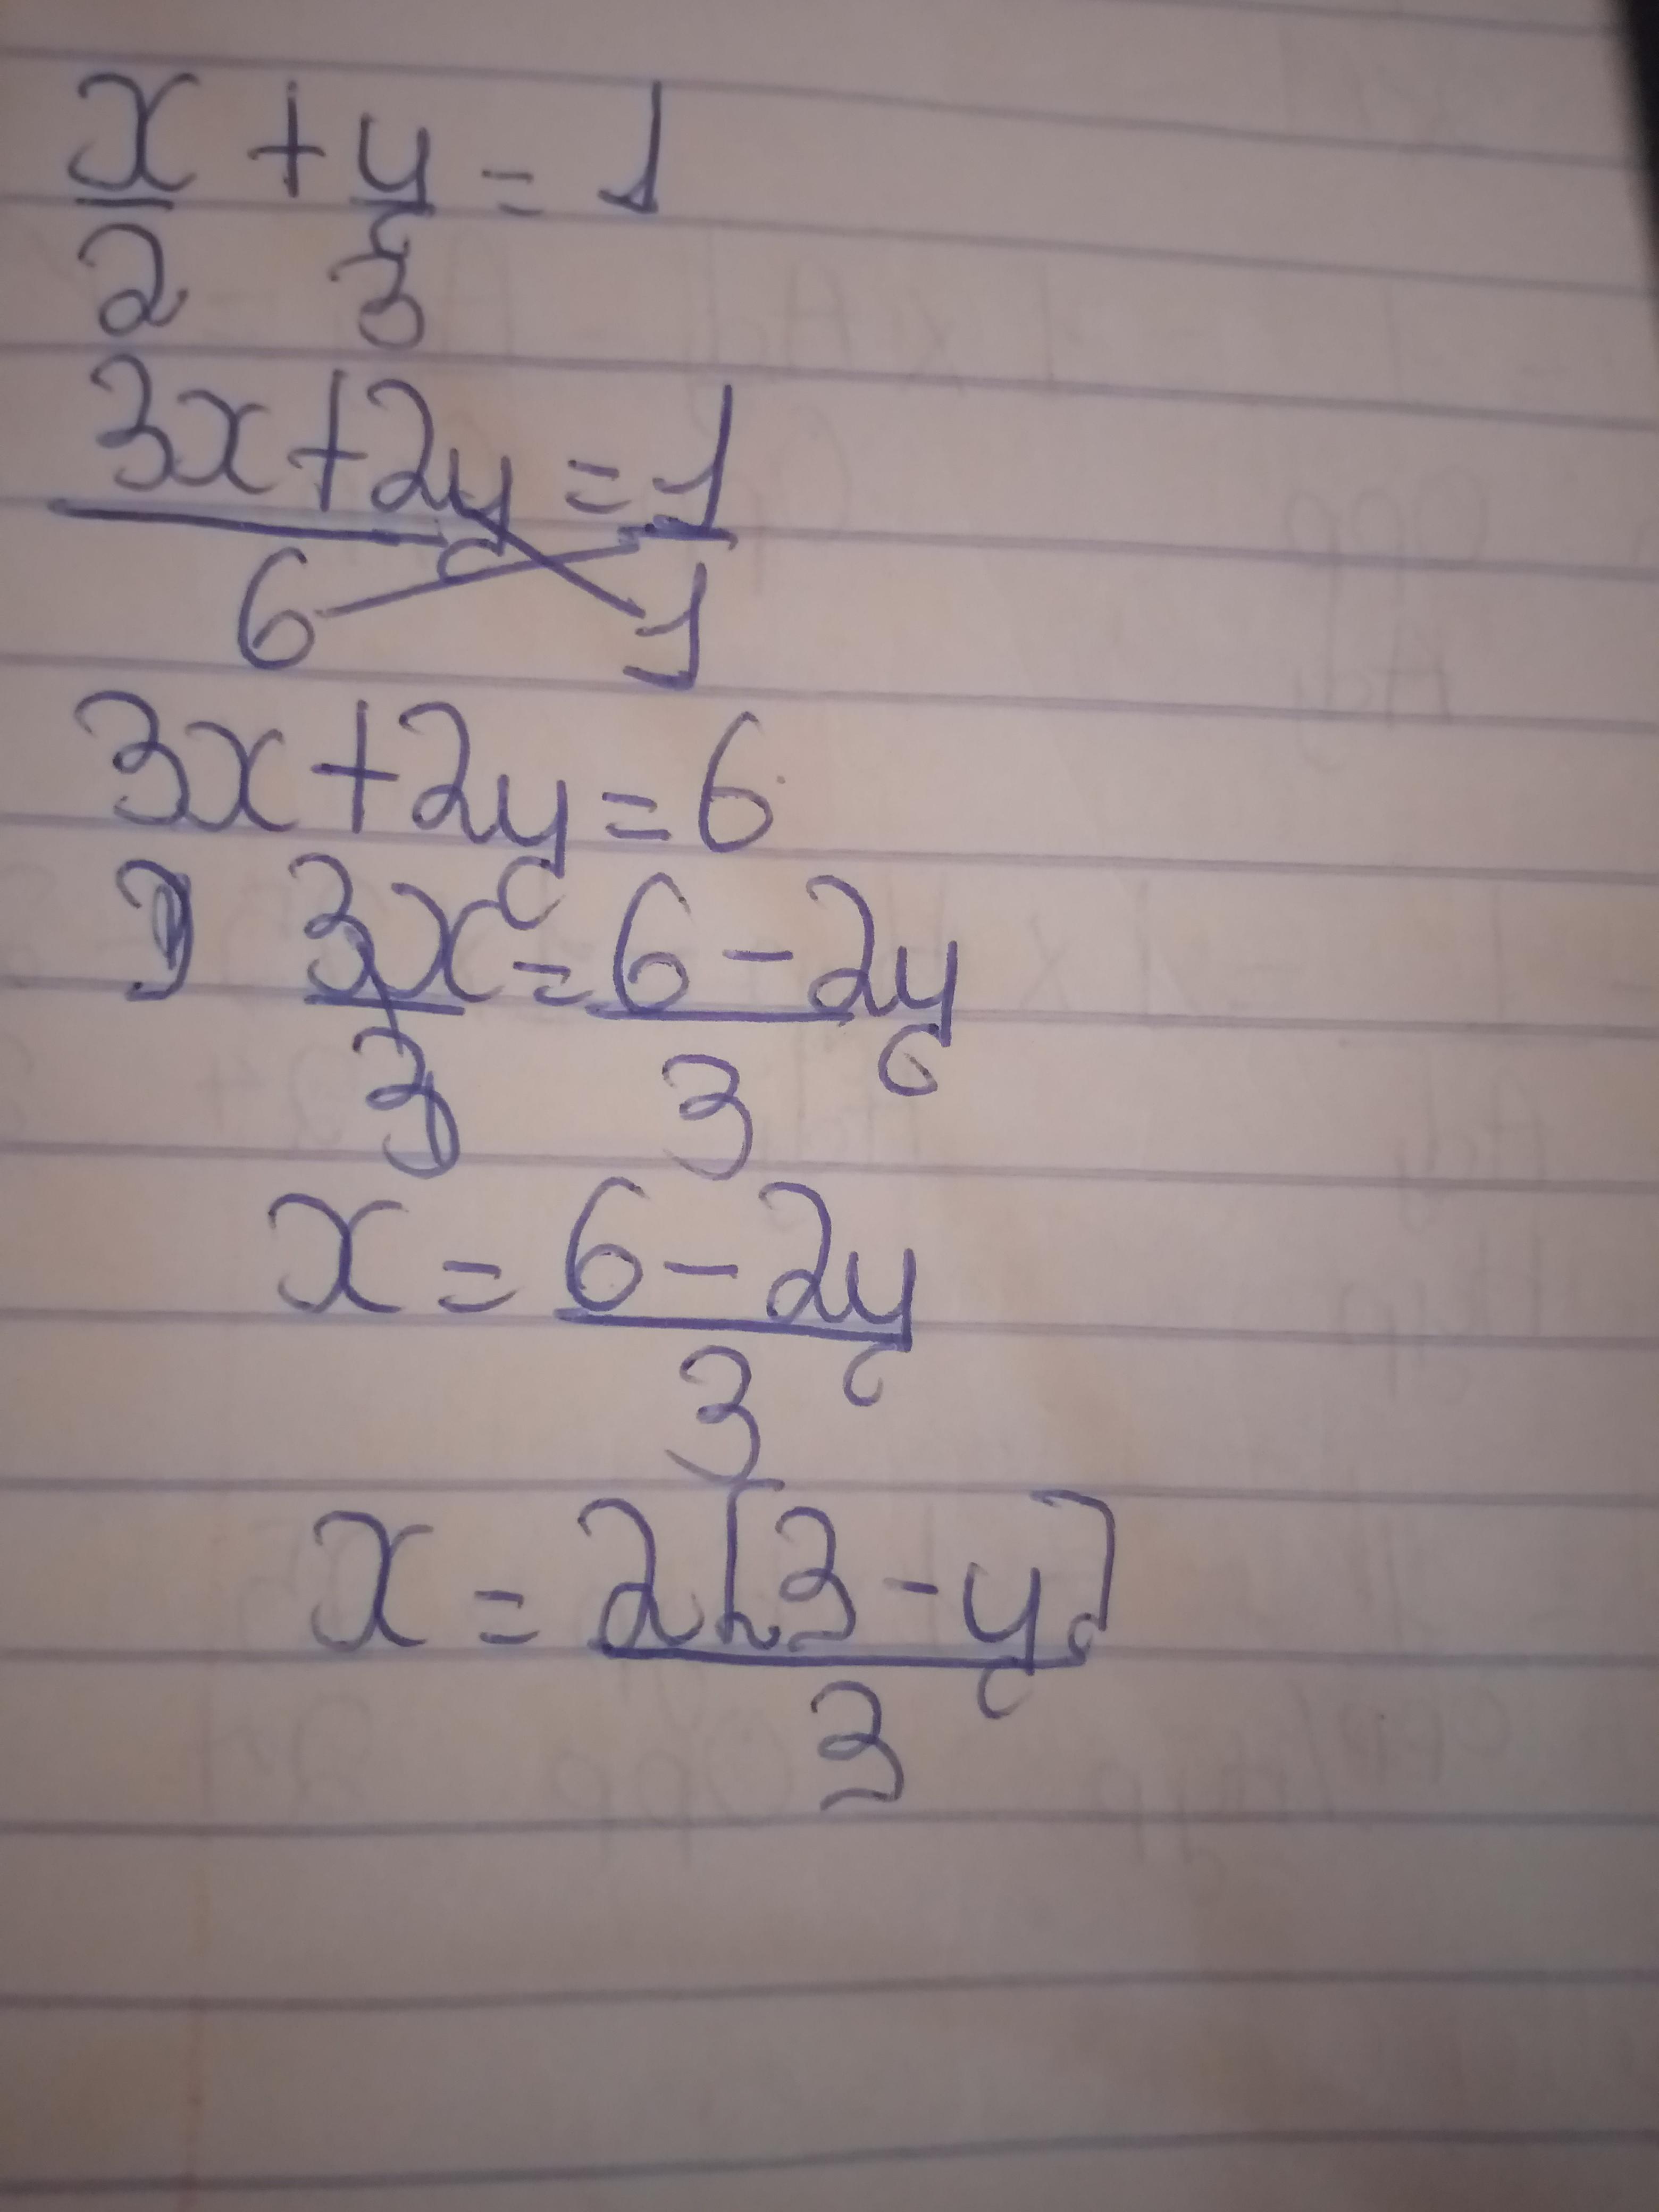 x/2 + y/3 = 1
(3x+2y)/6 = 1/1
3x+2y=6
3x/3 = (6-2y)/3
x = (6-2y)/3
x = 2[3-y]/3